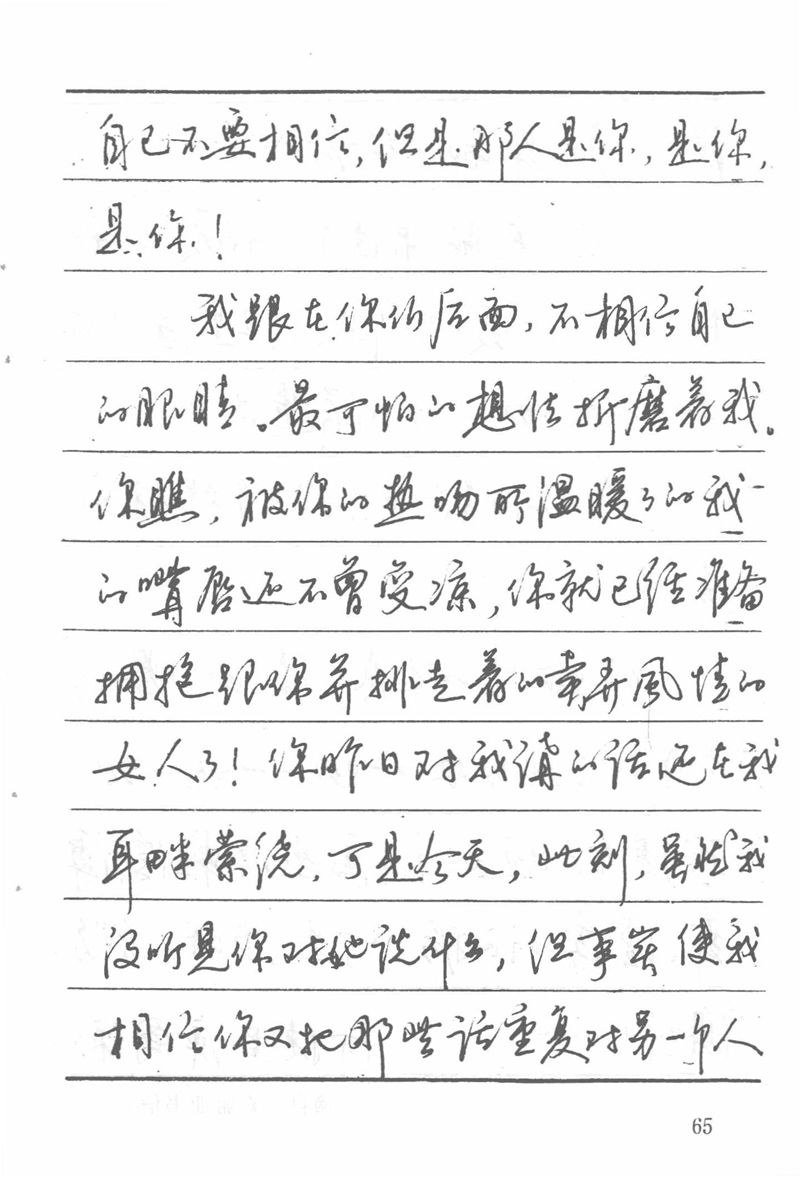 自己不要相信，但是那人是你，是你，
是你！
我跟在你们后面，不相信自己
的眼睛。最可怕的想法折磨着我。
你瞧，被你的热吻所温暖了的我
的嘴唇还不曾变凉，你就已经准备
拥抱跟你并排走着的卖弄风情的
女人了！你昨日对我讲的话还在我
耳畔萦绕，可是今天，此刻，虽然我
没听见你对她说什么，但事实使我
相信你又把那些话重复对另一个人
65